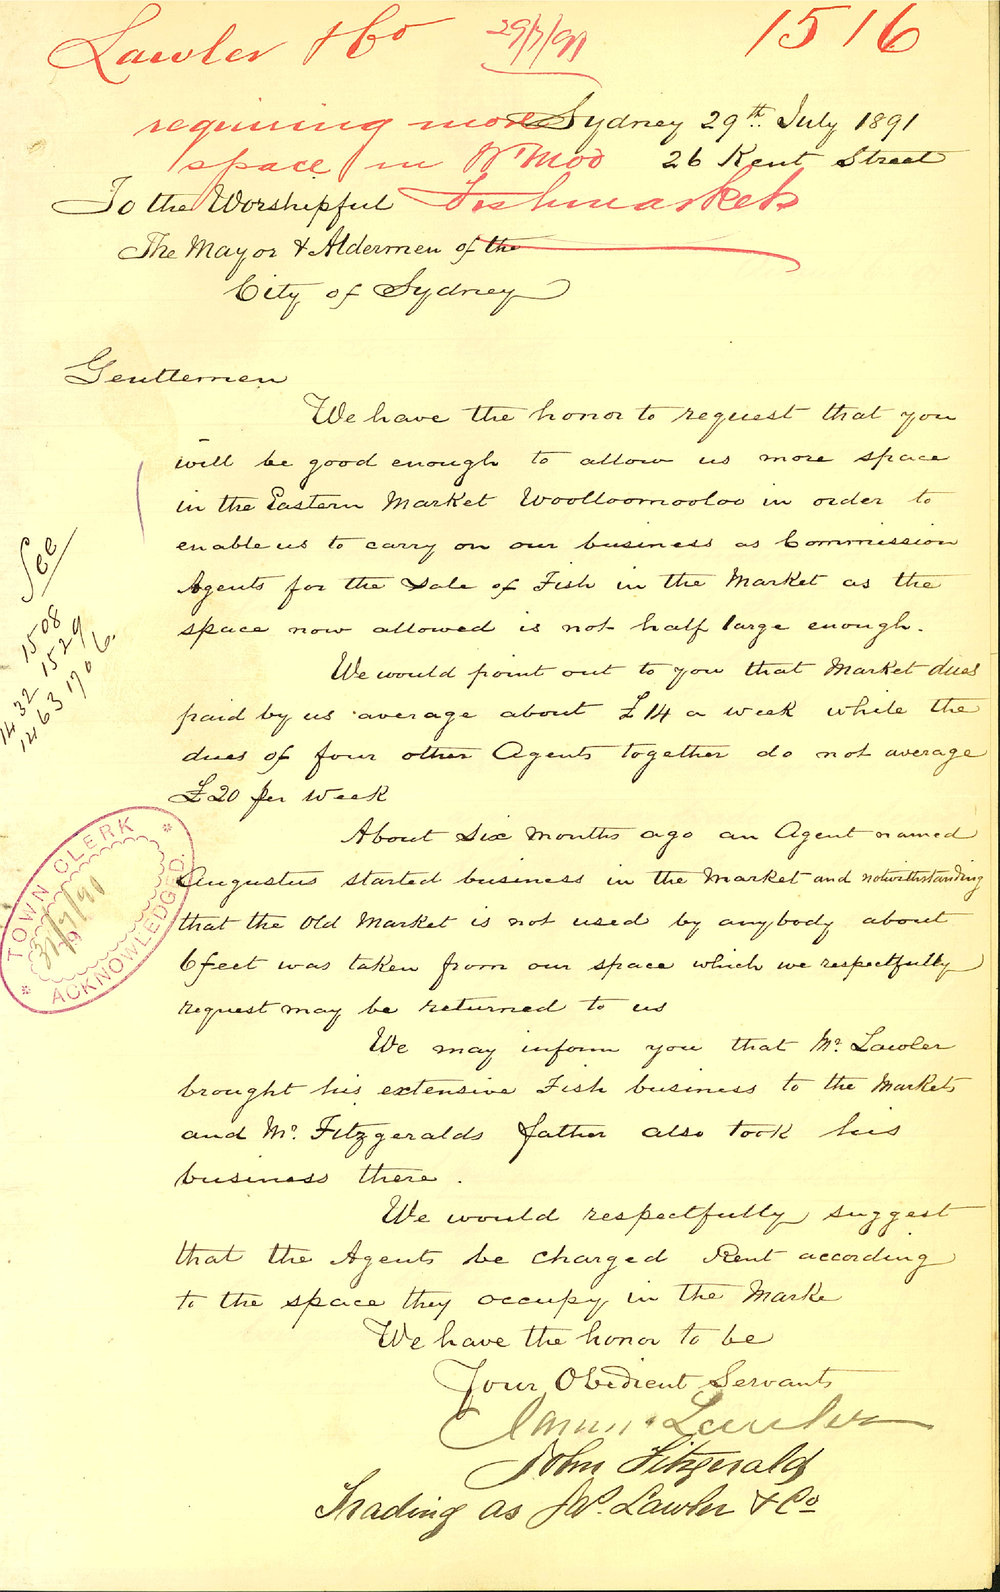 Lawler & Co
29/7/91
1516
requiring more
space in W'Moo
Fishmarkets
Sydney 29th July 1891
26 Kent Street
To the Worshipful
The Mayor & Aldermen of the
City of Sydney
Gentlemen
We have the honor to request that you
will be good enough to allow us more space
in the Eastern Market Woolloomooloo in order to
enable us to carry on our business as Commission
Agents for the Sale of Fish in the Market as the
space now allowed is not half large enough.
We would point out to you that Market dues
paid by us average about £14 a week while the
dues of four other Agents together do not average
£20 per week
About Six months ago an Agent named
Augustus started business in the Market and notwithstanding
that the Old Market is not used by anybody about
6 feet was taken from our space which we respectfully
request may be returned to us
We may inform you that Mr. Lawler
brought his extensive Fish business to the Markets
and Mr. Fitzgeralds father also took his
business there.
We would respectfully suggest
that the Agents be charged Rent according
to the space they occupy in the Marke
We have the honor to be
Your Obedient Servants
Lawler
John Fitzgerald
Trading as Lawler & Co
See
1508
1432 1529
1463 1706
TOWN CLERK
31/7/91
ACKNOWLEDGED